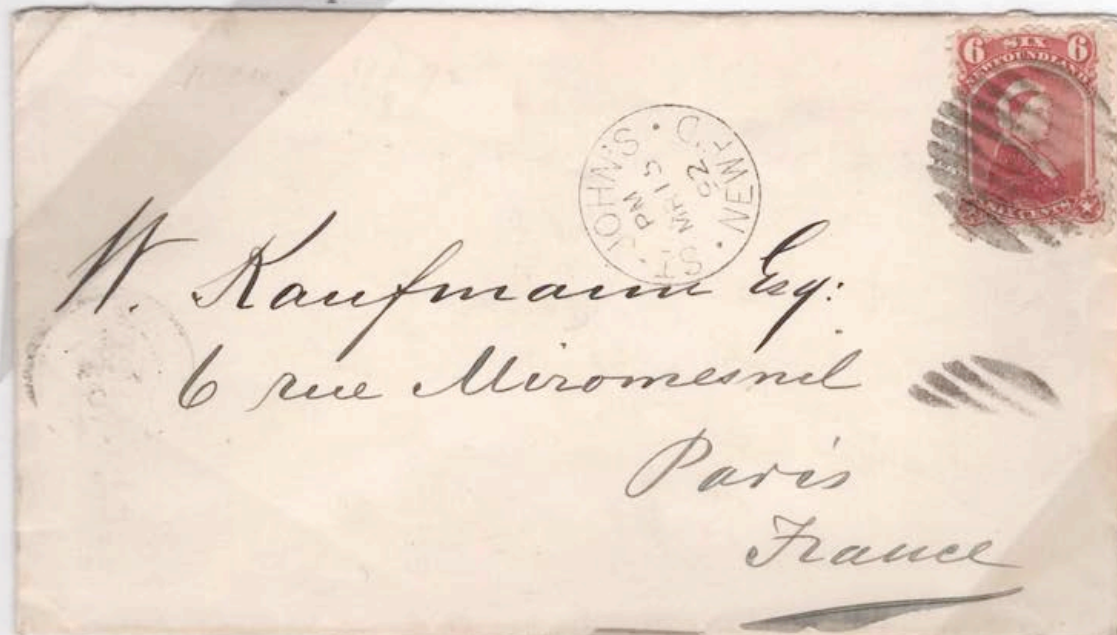 6 SIX 6
NEWFOUNDLAND
SIX CENTS
ST. JOHN'S · NEWF'D ·
PM
MR 15
92
W. Kaufmann Esq:
6 rue Miromesnil
Paris
France